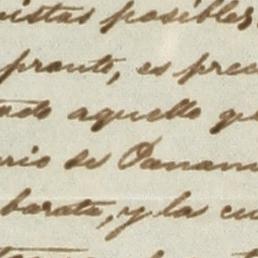 vistas posibles,
pronto, es prec
todo aquello qu
rio de Panam
barata, y la cu